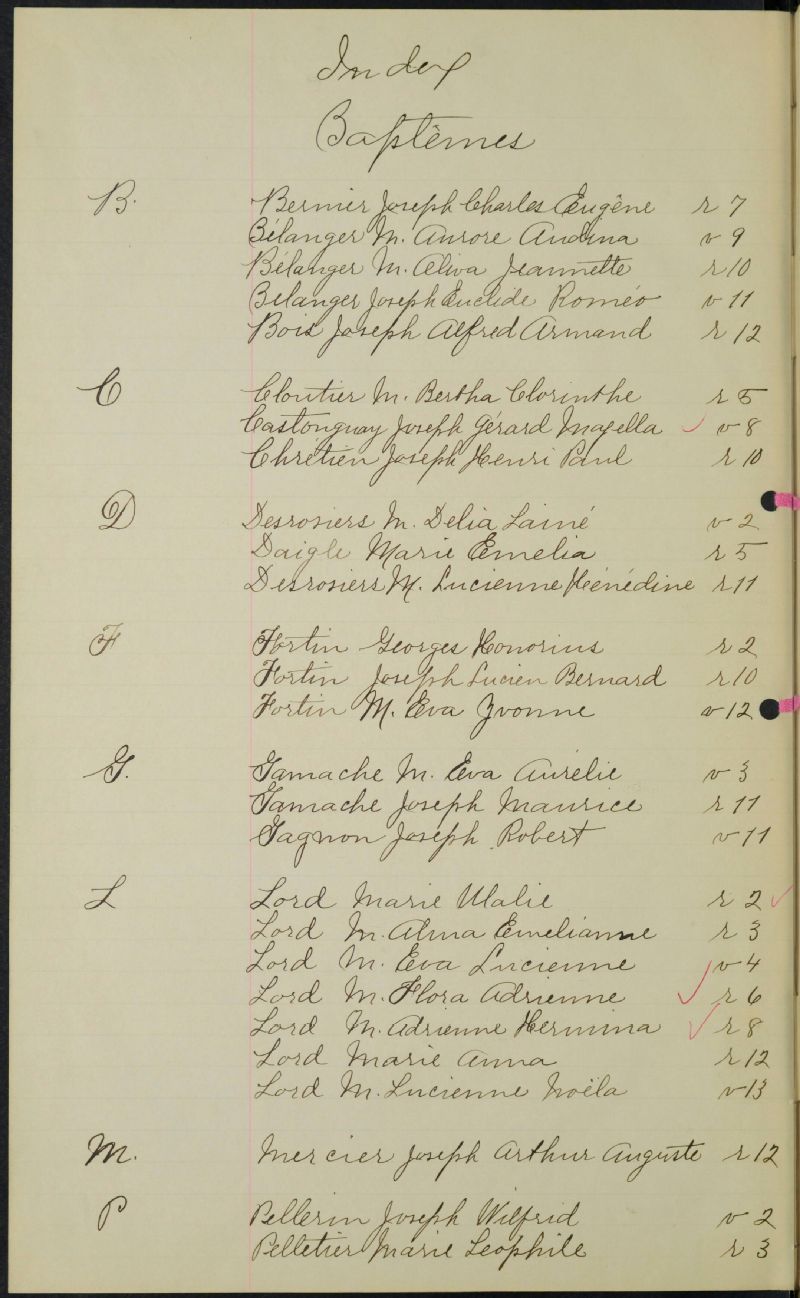 Index
Baptêmes
B. Bernier Joseph Charles Eugène r 7
Bélanger M. Aurore Andina v 9
Bélanger M. Aliva Jeannette r 10
Bélanger Joseph Euclide Roméo v 11
Bois Joseph Alfred Armand r 12
C Cloutier M. Bertha Clorinthe r 5
Castonguay Joseph Gérard Magella v 8
Chrétien Joseph Henri Paul r 10
D Desrosiers M. Delia Lainé v 2
Daigle Marie Emelia r 5
Desrosiers M. Lucienne Hénédine r 11
F Fortin Georges Honorius r 2
Fortin Joseph Lucien Bernard r 10
Fortin M. Eva Yvonne v 12
G. Gamache M. Eva Aurélie v 3
Gamache Joseph Maurice r 11
Gagnon Joseph Robert v 11
L Lord Marie Ulalie r 2
Lord M. Alma Emelianne r 3
Lord M. Eva Lucienne v 4
Lord M. Flora Adrienne r 6
Lord M. Adrienne Hermina r 8
Lord Marie Anna r 12
Lord M. Lucienne Noëla v 13
M. Mercier Joseph Arthur Auguste r 12
P Pellerin Joseph Wilfrid v 2
Pelletier Marie Leophile r 3